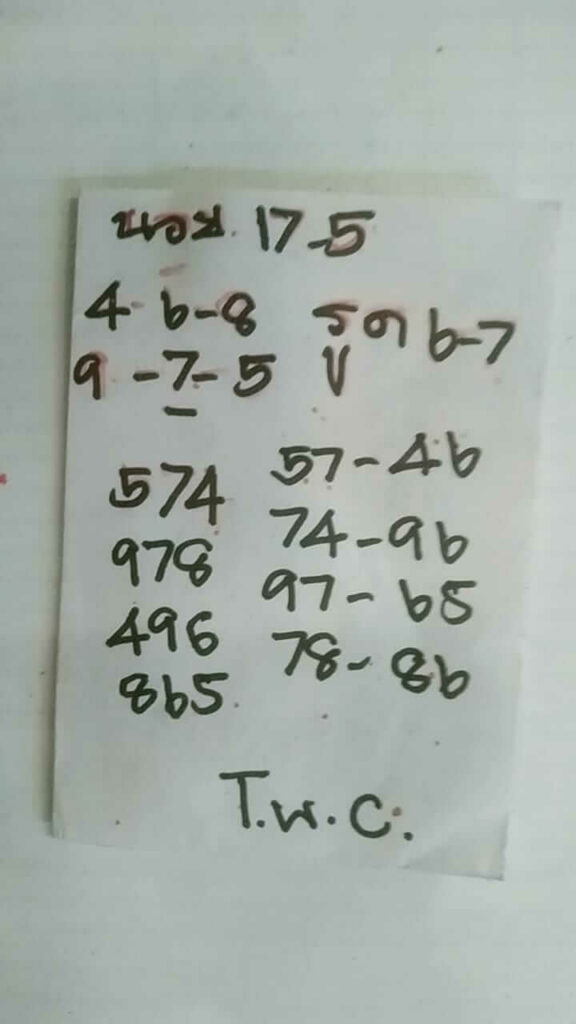 17-5
4-6-8 รูด 6-7
9-7-5
574 57-46
978 74-96
496 97-65
865 78-86
T.W.C.